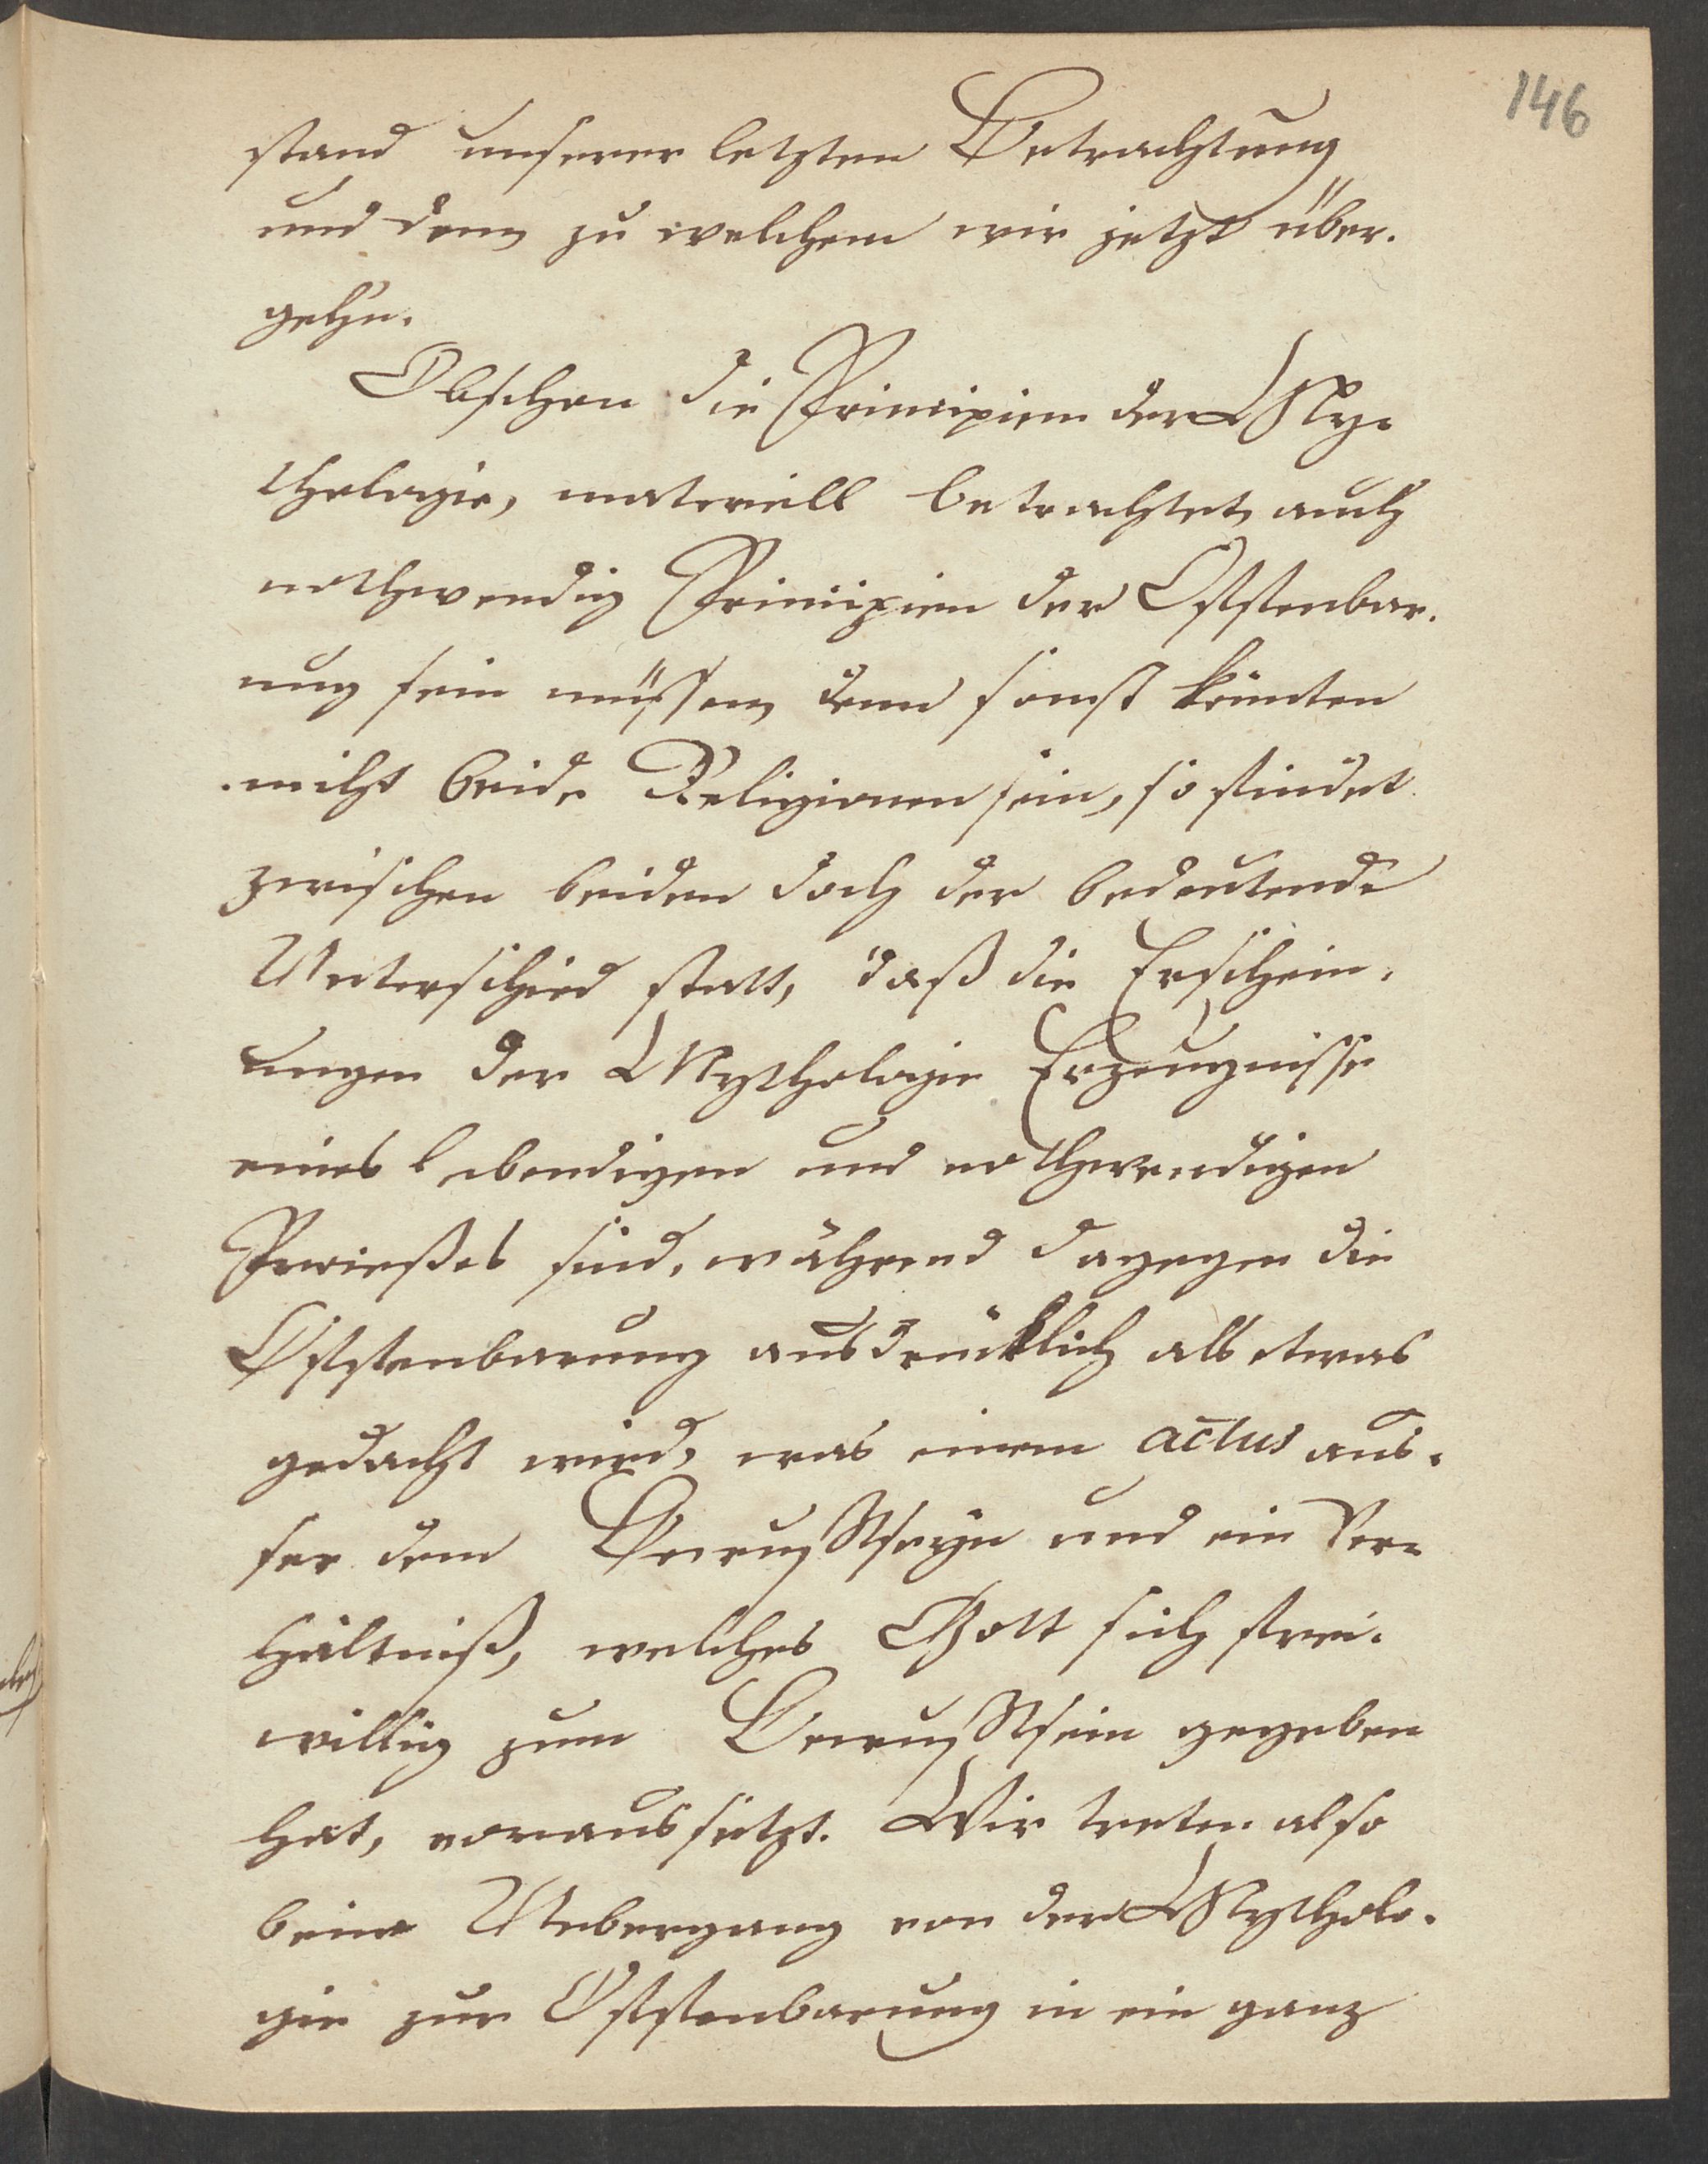 146
stand unserer letzten Betrachtung
und dem zu welchem wir jetzt über-
gehn.
Obschon die Principien der My-
thologie, materiell betrachtet, auch
nothwendig Principien der Offenbar-
ung sein müssen, denn sonst könnten
nicht beide Religionen sein, so findet
zwischen beiden doch der bedeutende
Unterschied statt, daß die Erschein-
ungen der Mythologie Erzeugnisse
eines lebendigen und nothwendigen
Prozeßes sind, während dagegen die
Offenbarung ausdrücklich als etwas
gedacht wird, was einem actus aus-
ser dem Bewußtseyn und ein Ver-
hältniß, welches Gott sich frei-
willig zum Bewußtsein gegeben
hat, voraussetzt. Wir treten also
beim Uebergang von der Mytholo-
gie zur Offenbarung in ein ganz